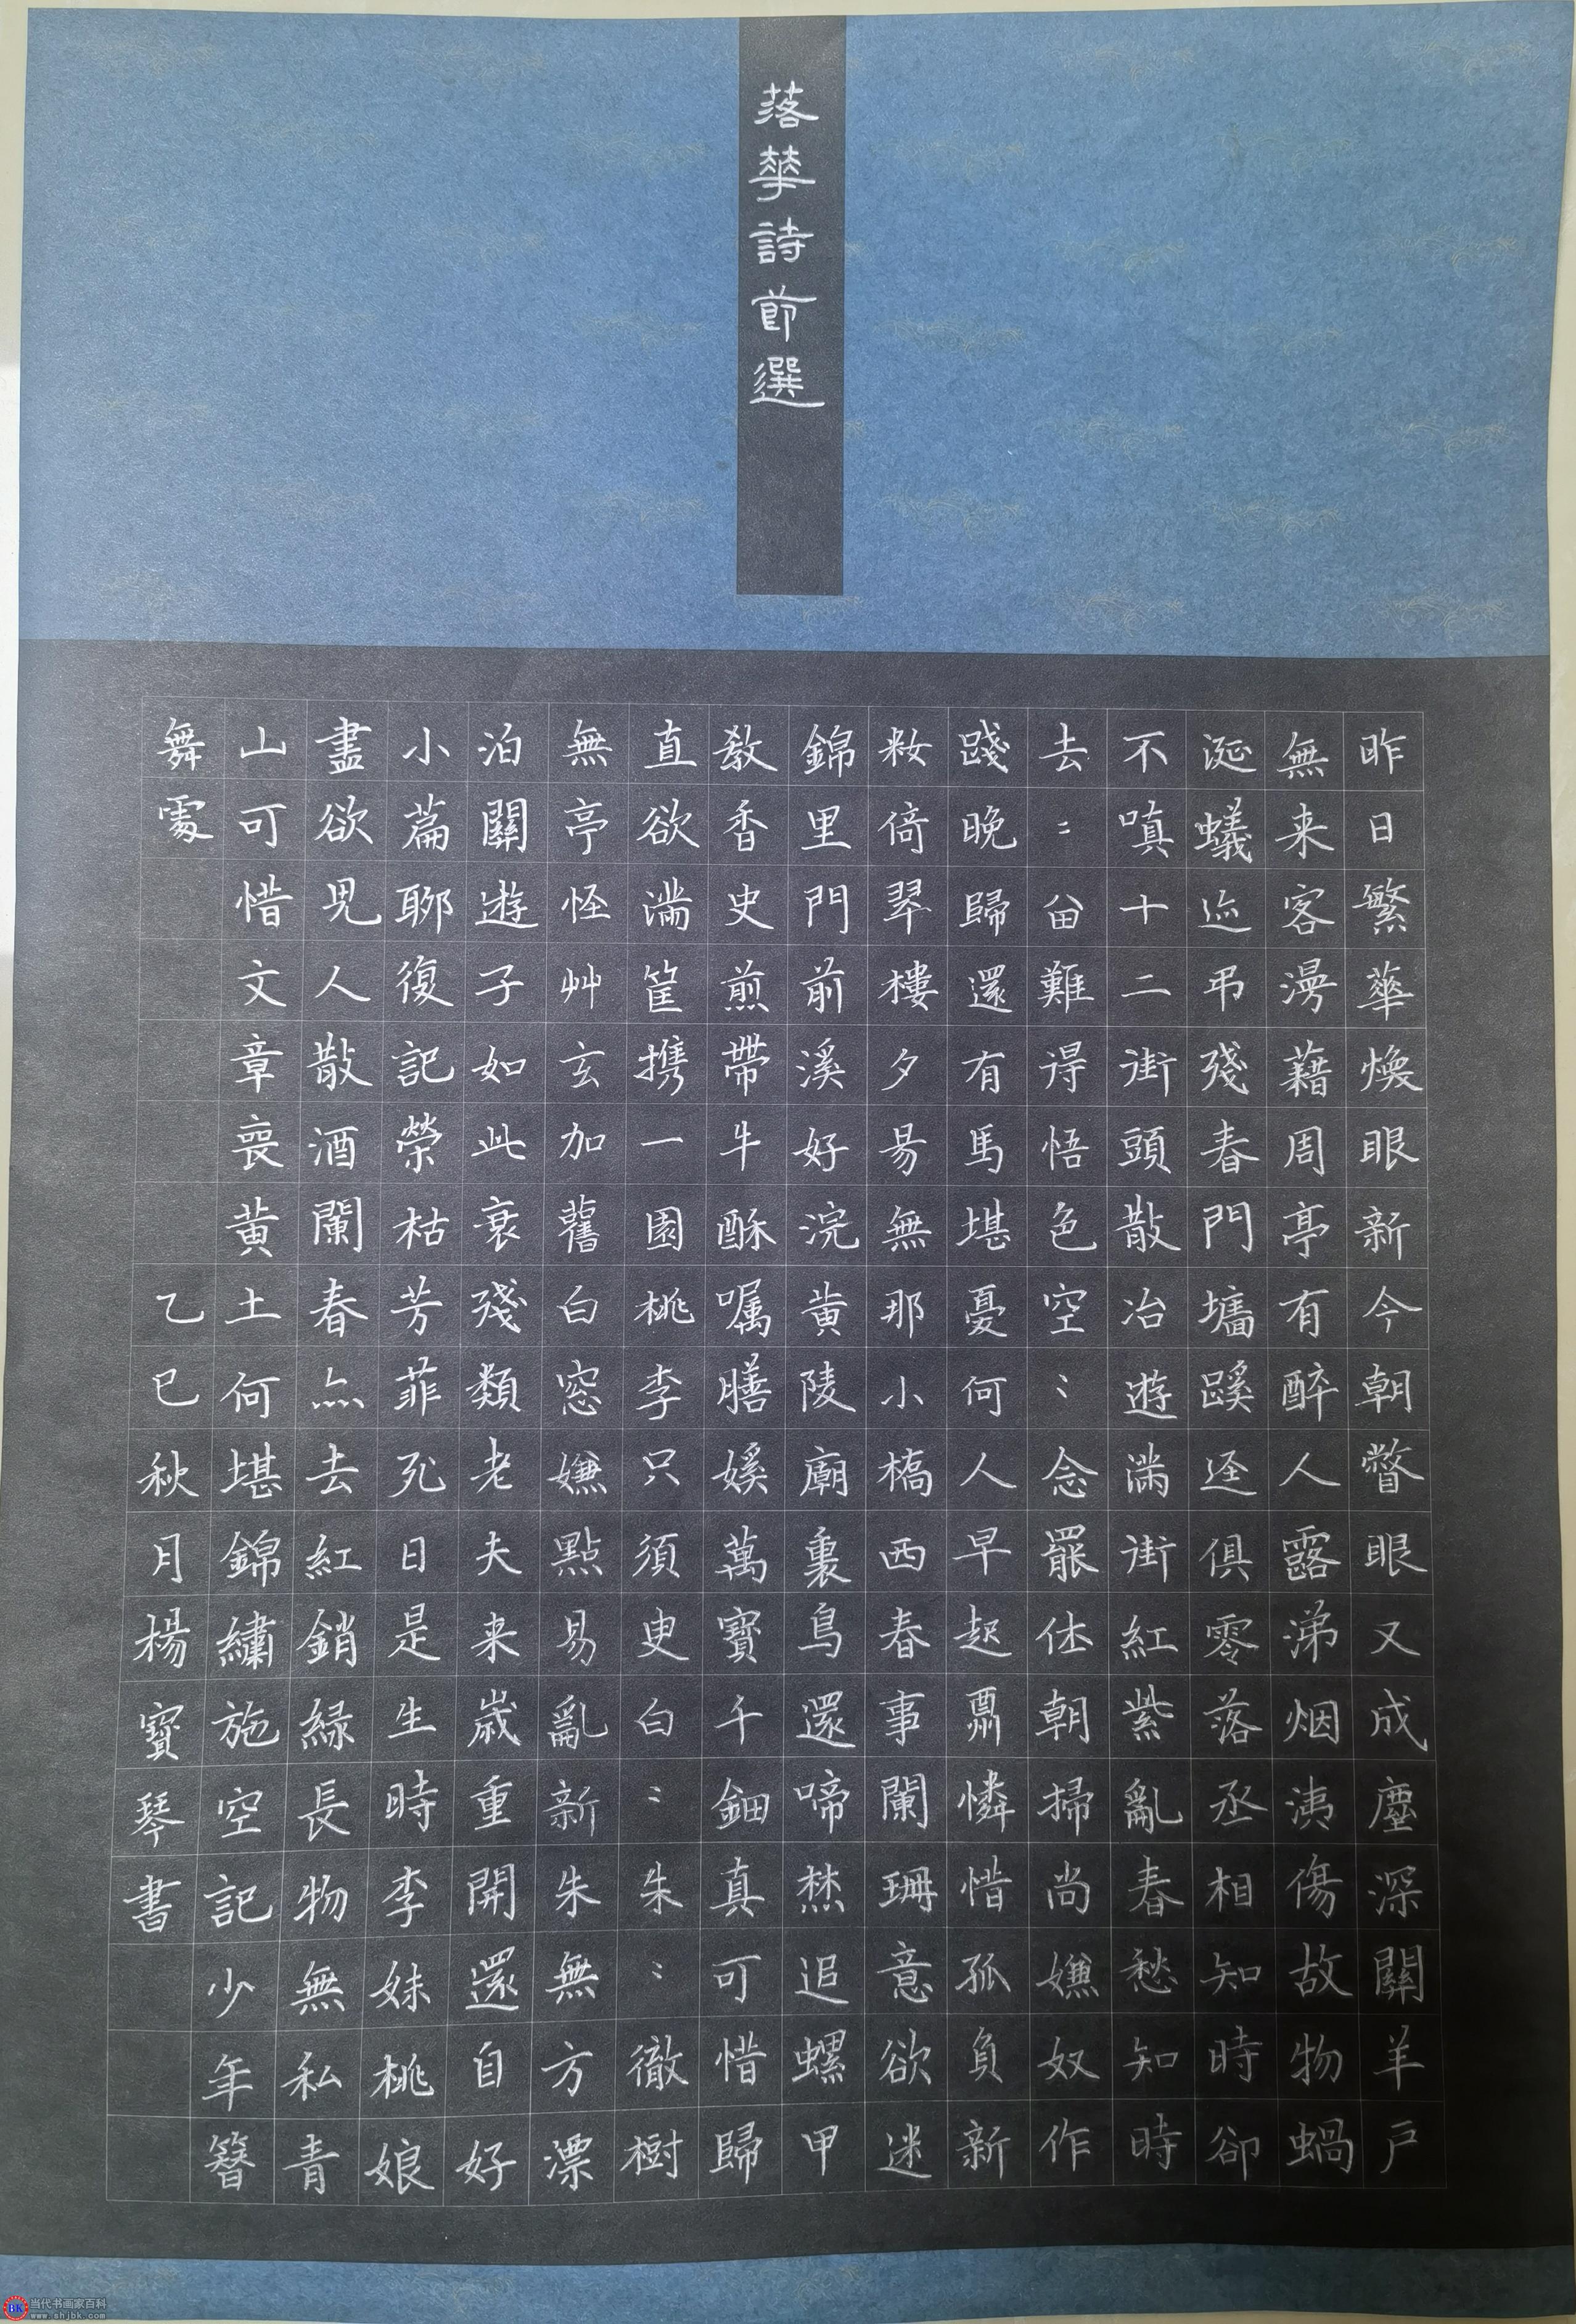 落華詩莭選
昨日繁華煥眼新今朝瞥眼又成塵深關羊戶
無来客漫藉周亭有醉人露涕烟洟傷故物蝸
涎蟻迹弔殘春門墻蹊逕俱零落丞相知時卻
不嗔十二街頭散冶遊滿街紅紫亂春愁知時
去〻留難得悟色空〻念罷休朝掃尚嫌奴作
踐晚歸還有馬堪憂何人早起鬲憐惜孤負新
妝倚翠樓夕昜無那小橋西春事闌珊意欲迷
錦里門前溪好浣黄陵廟裏鳥還啼焚追螺甲
教香史煎帶牛酥囑膳㜎萬寶千鈿真可惜歸
直欲滿筐携一園桃李只須臾白〻朱〻徹樹
無亭怪艸玄加舊白窓嫌點易亂新朱無方漂
泊關遊子如此衰殘類老夫来歲重開還自好
小篇聊復記榮枯芳菲死日是生時李妹桃娘
盡欲兒人散酒闌春亦去紅銷緑長物無私青
山可惜文章喪黄土何堪錦繡施空記少年簪
舞處 乙巳秋月楊寶琴書
当代书画家百科
www.shjbk.com